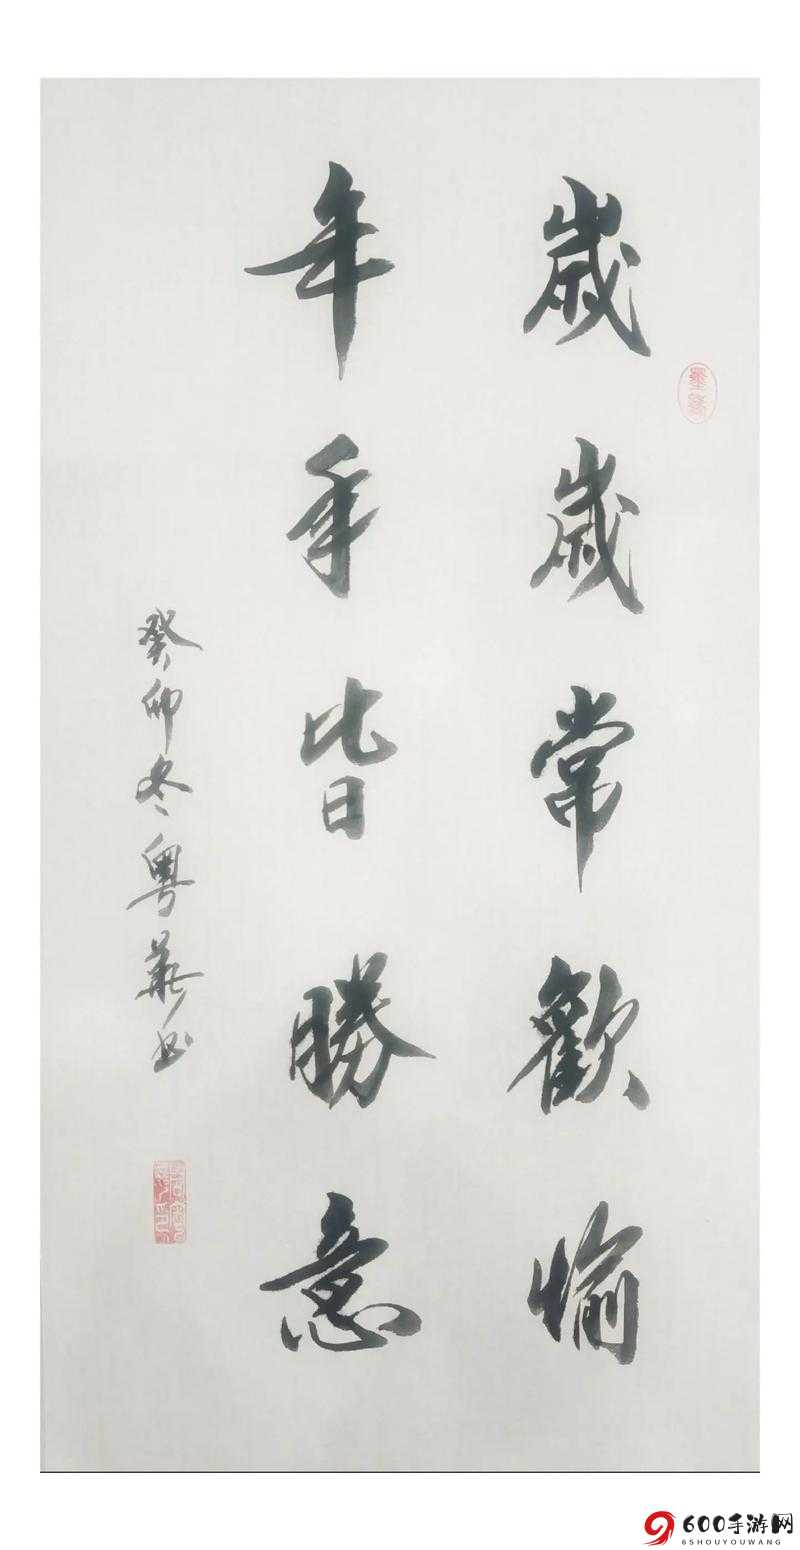 歲歲常歡愉
年年皆勝意
癸卯冬粵華书
600手游网
6SHOUYOUWANG